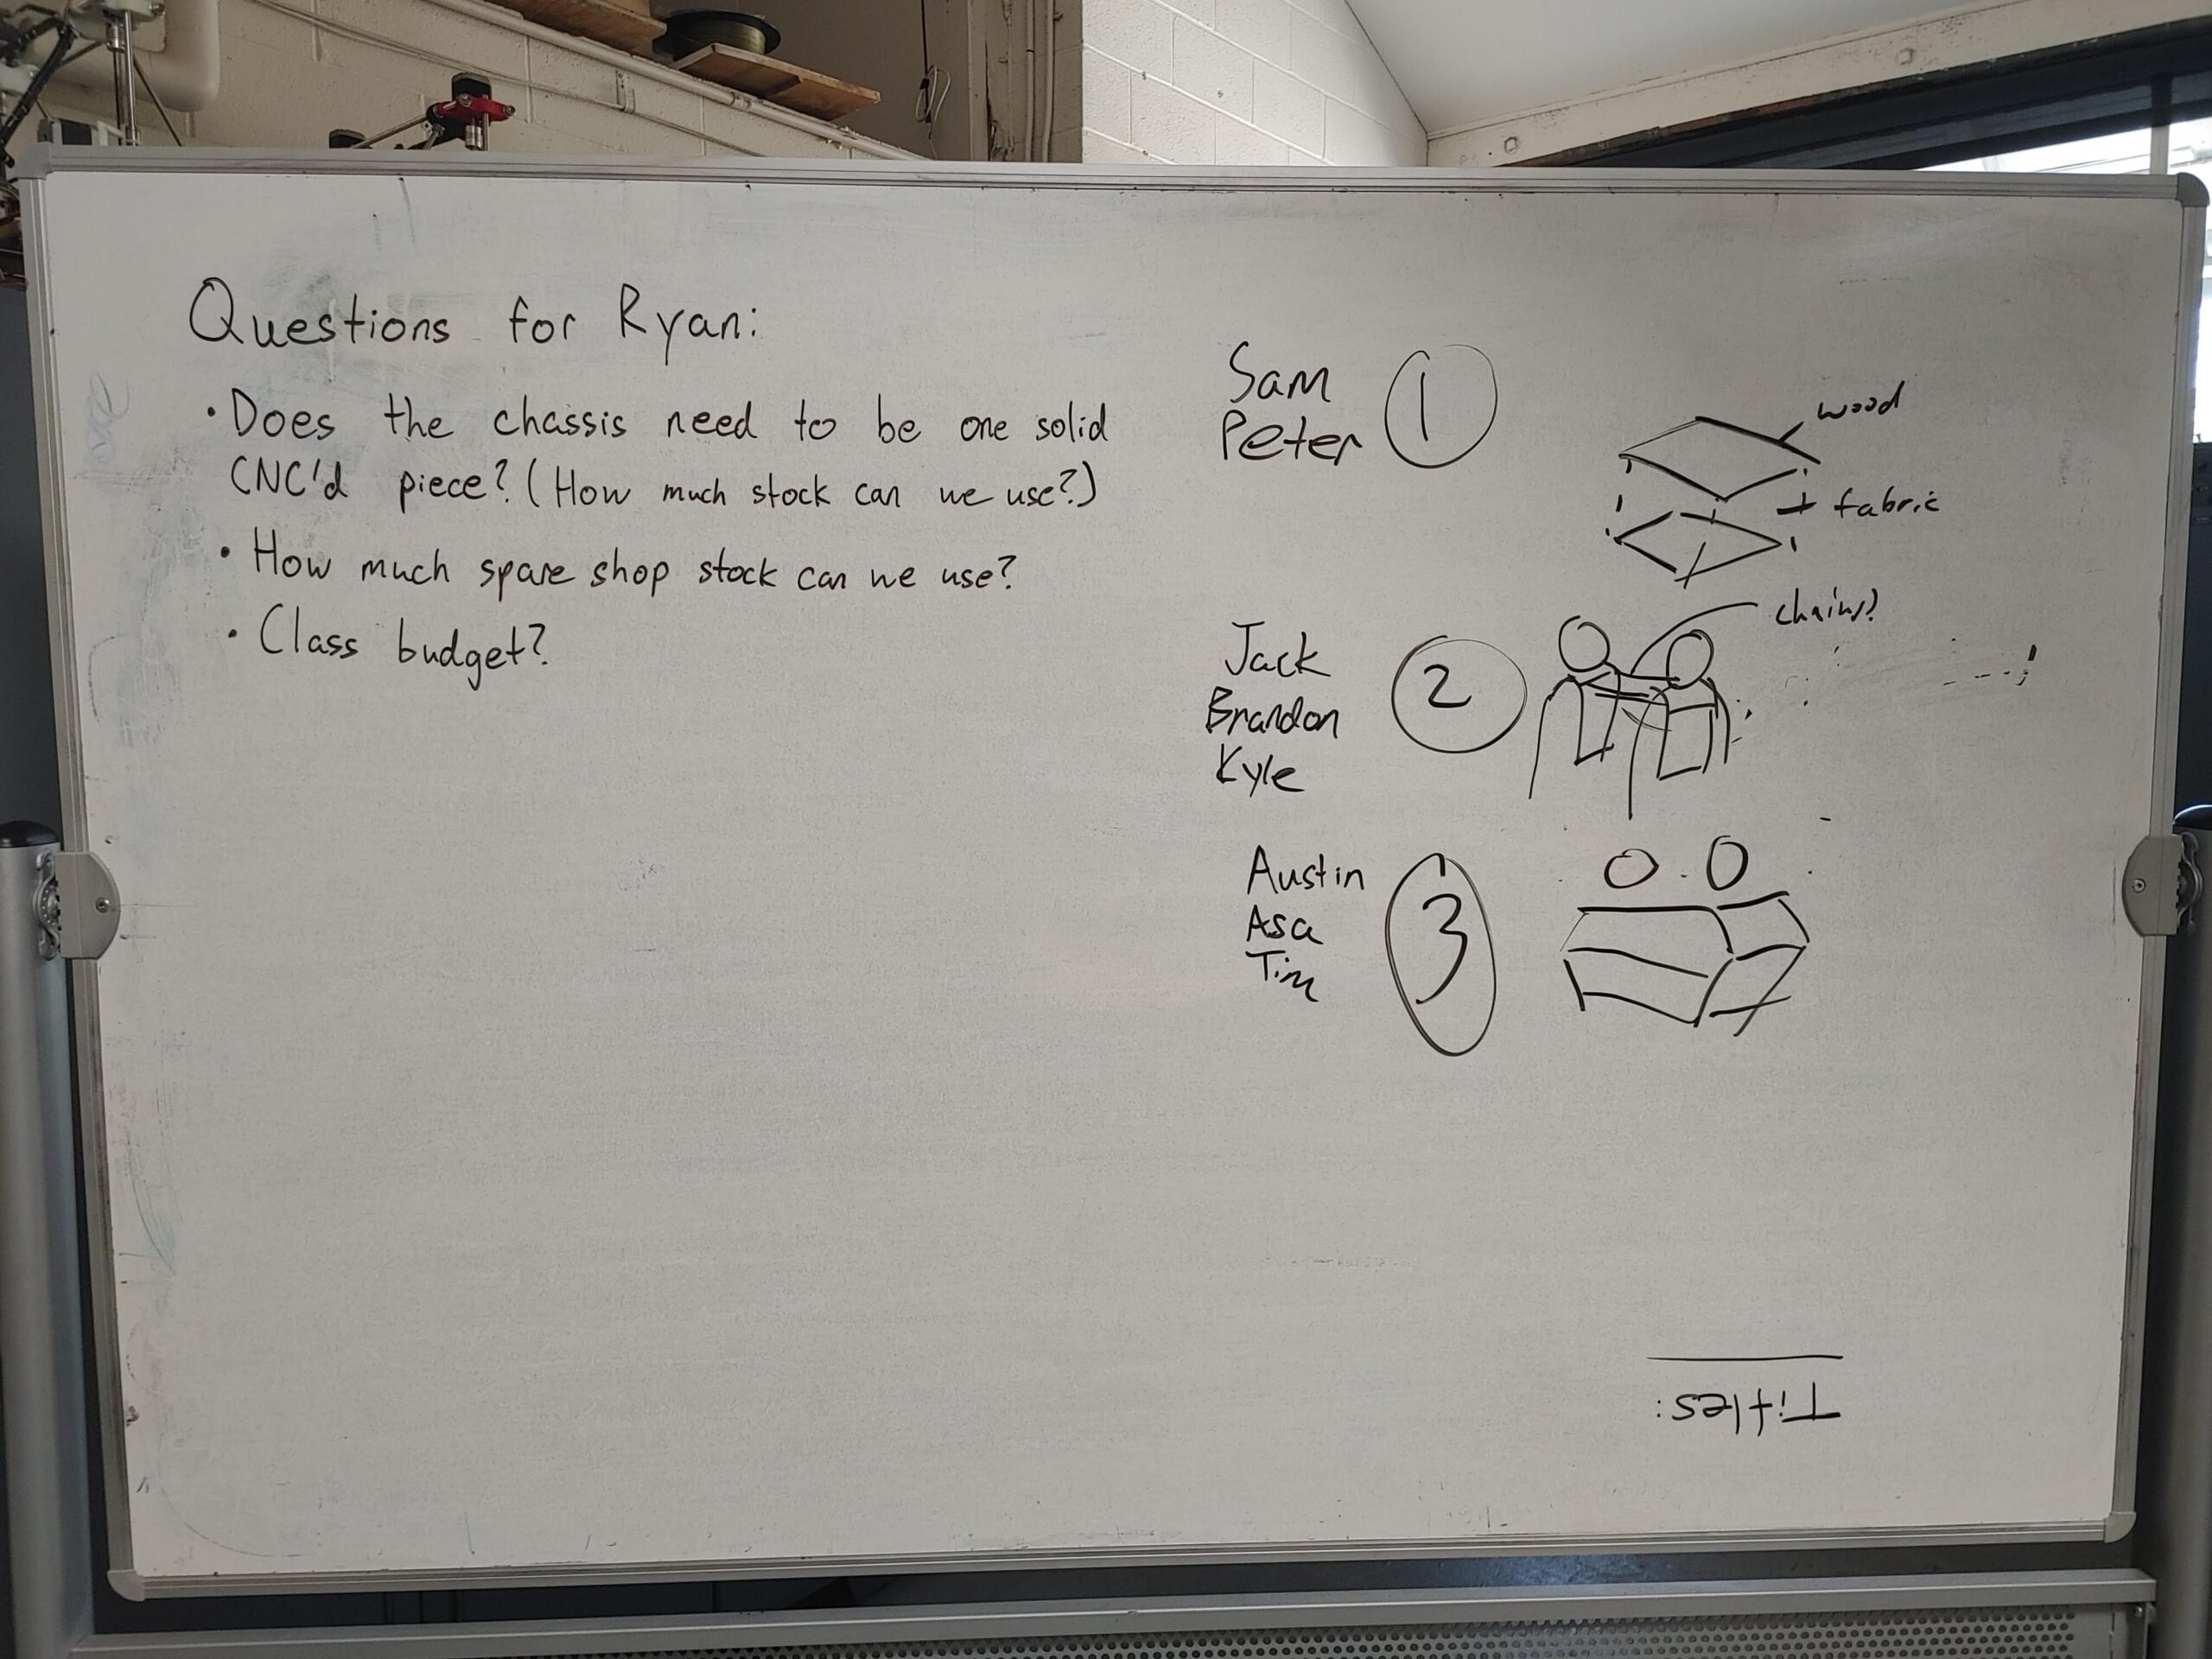 Questions for Ryan:
• Does the chassis need to be one solid
CNC'd piece? (How much stock can we use?)
• How much spare shop stock can we use?
• Class budget?
Sam
Peter
1
wood
+ fabric
Jack
Brandon
Kyle
2
chains?
Austin
Asa
Tim
3
Titles: